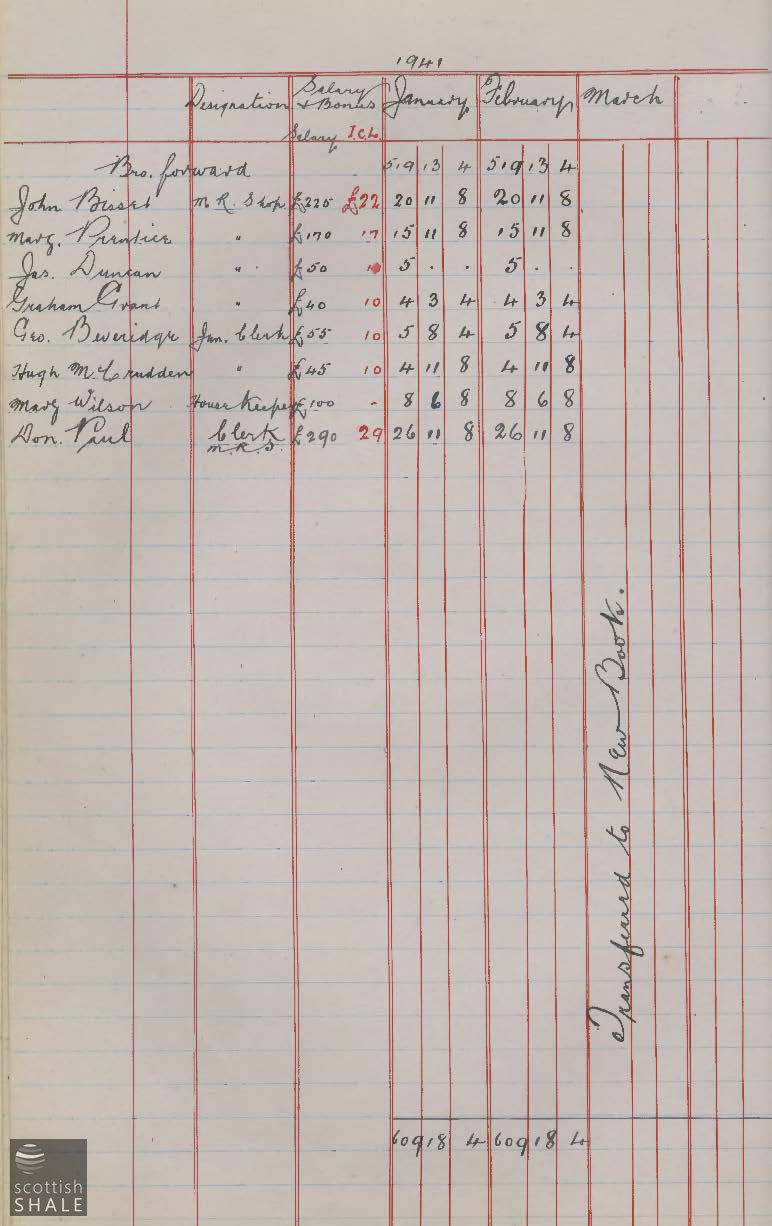 1941
Designation Salary & Bonus January February March
Salary I.C.L.
Bro. forward 519 13 4 519 13 4
John Bisset M.R. Shop £225 £22 20 11 8 20 11 8
Marg. Prentice " £170 17 15 11 8 15 11 8
Jas. Duncan " £50 10 5 . . 5 . .
Graham Grant " £40 10 4 3 4 4 3 4
Geo. Beveridge Jun. Clerk £55 10 5 8 4 5 8 4
Hugh McCrudden " £45 10 4 11 8 4 11 8
Marg Wilson House Keeper £100 - 8 6 8 8 6 8
Don. Paul Clerk M.R.S. £290 29 26 11 8 26 11 8
Transferred to New Book.
609 18 4 609 18 4
scottish
SHALE